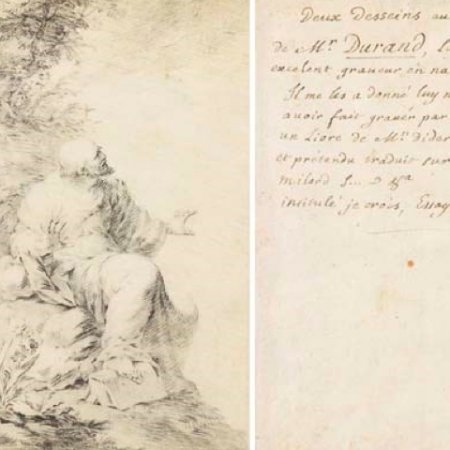 Deux Desseins au
de Mr. Durand,
excelent graveur en na
Il me les a donné luy m
avoir fait graver par
un Livre de Mr. Dider
et prétendu traduit sur
milord S...
intitulé je crois, Essay